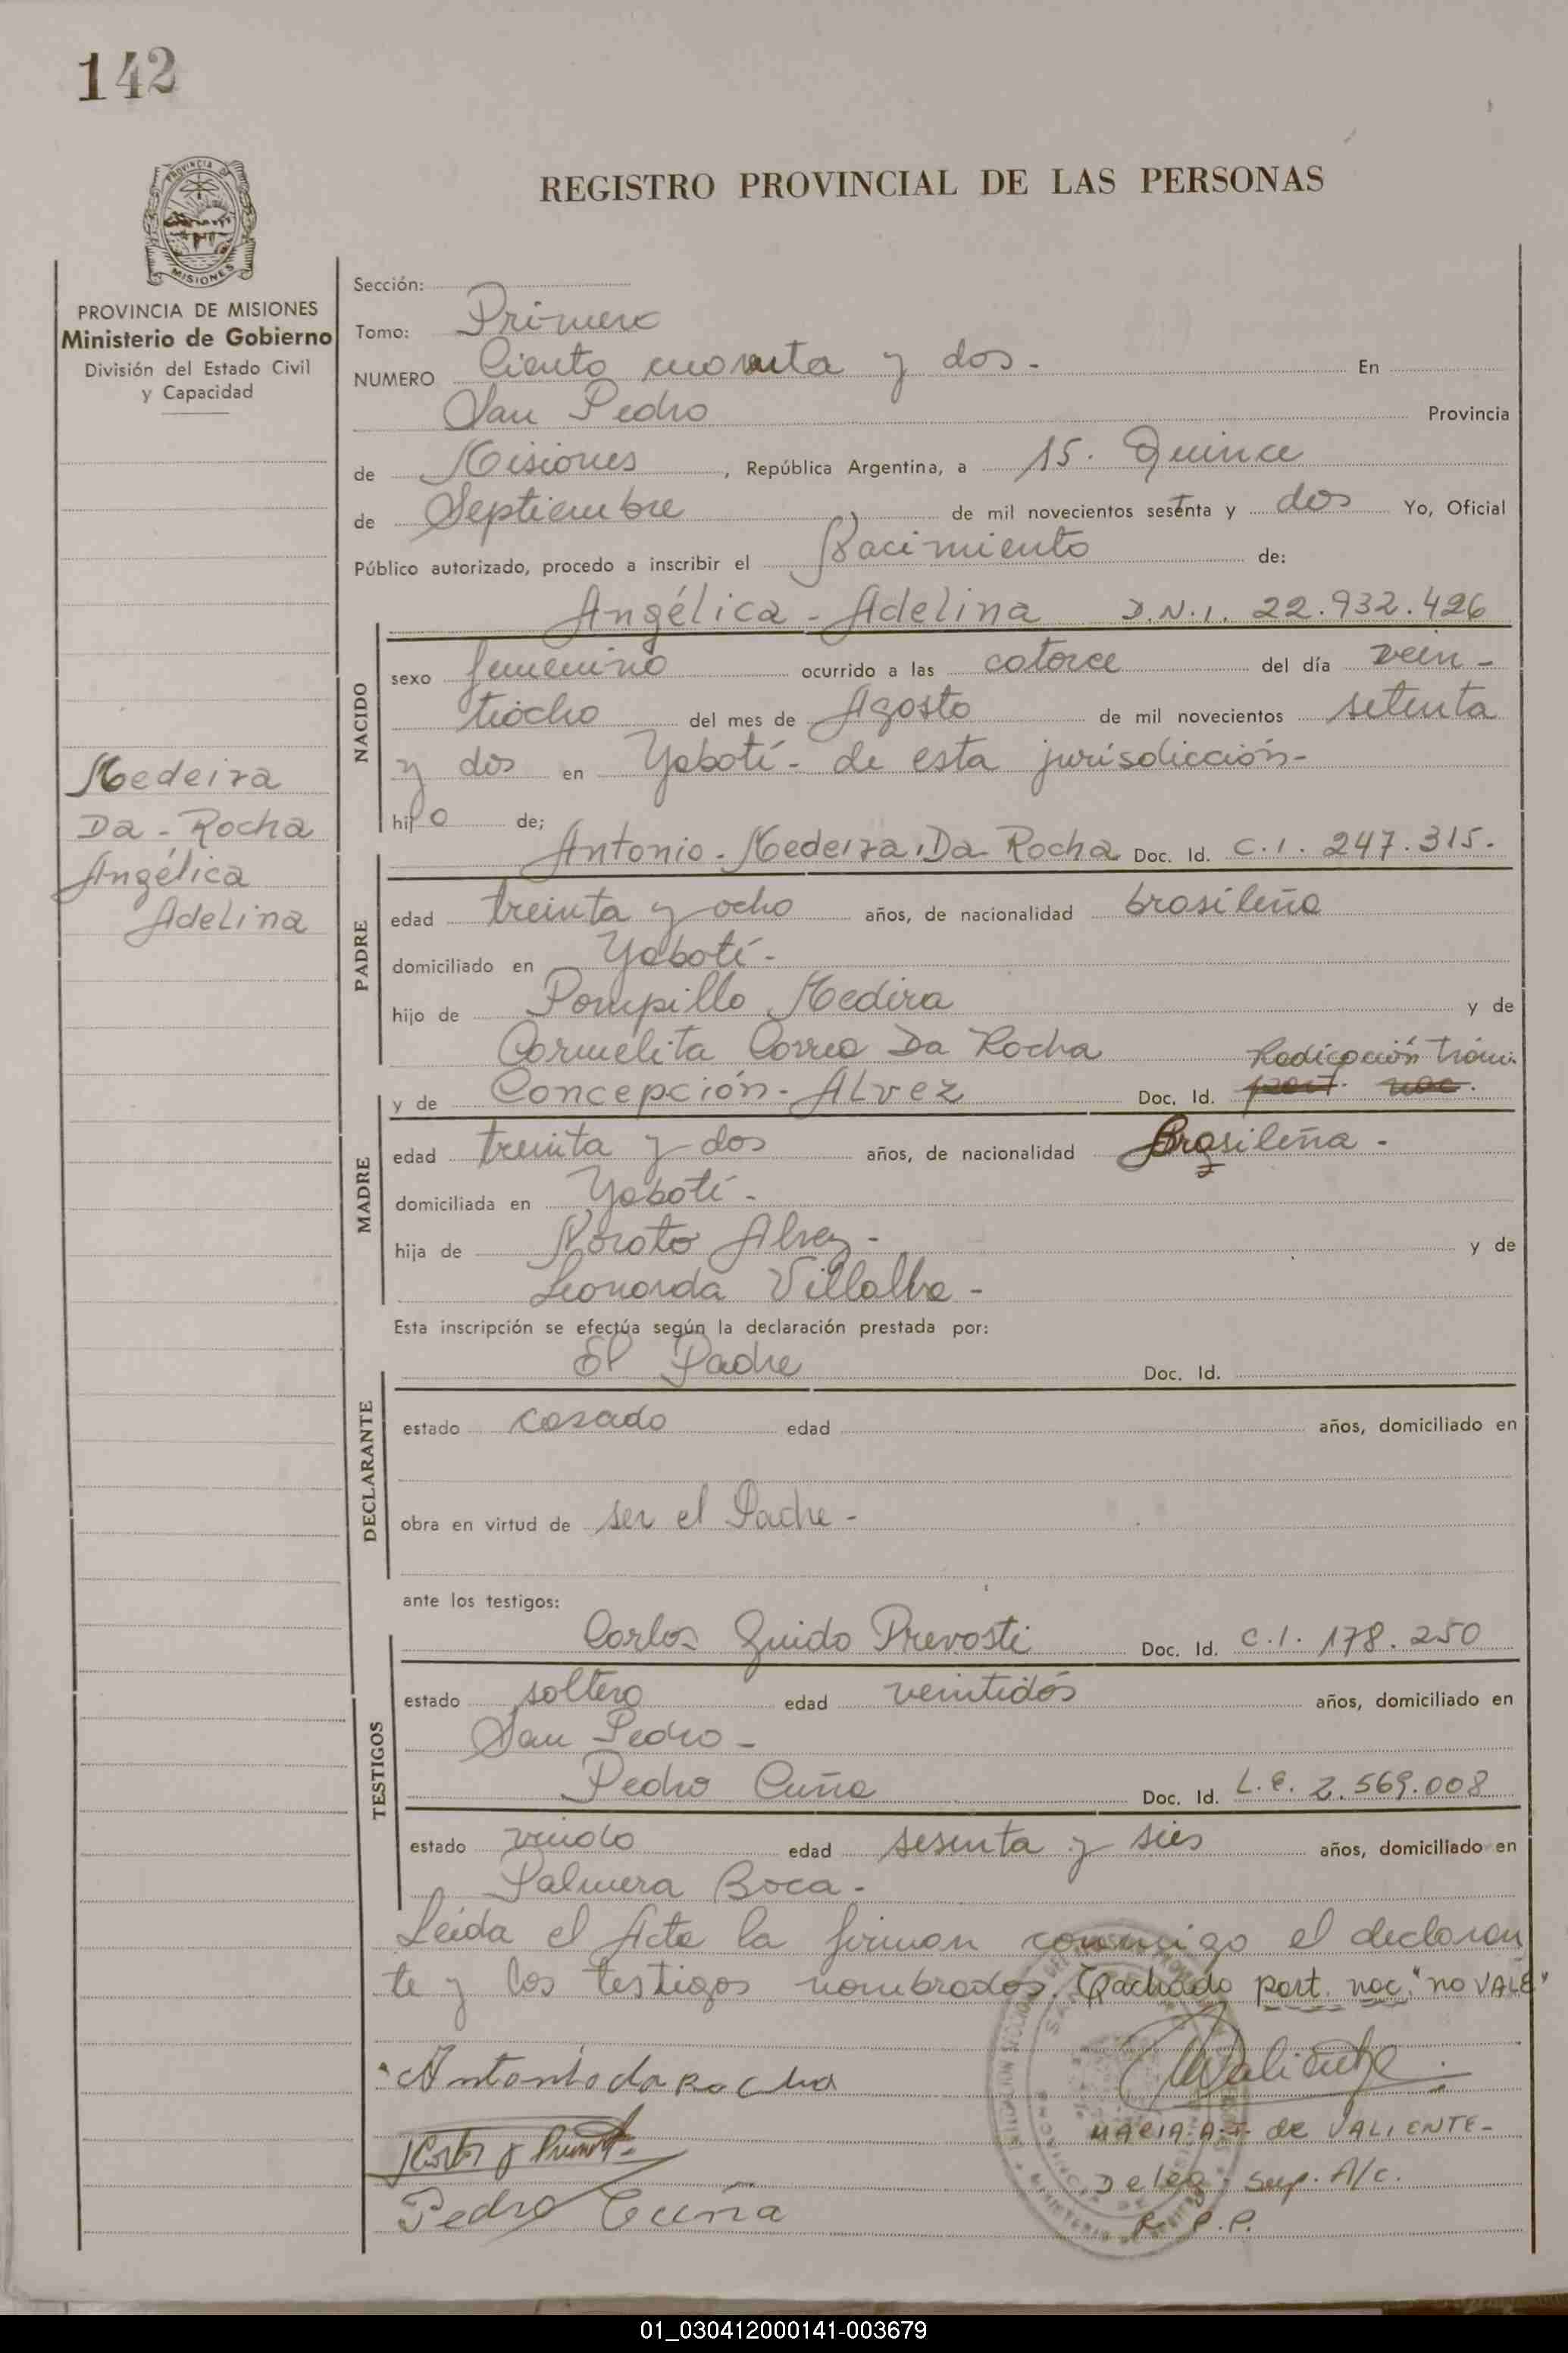 142
PROVINCIA
MISIONES
REGISTRO PROVINCIAL DE LAS PERSONAS
PROVINCIA DE MISIONES
Ministerio de Gobierno
División del Estado Civil
y Capacidad
Sección:
Tomo: Primero
NUMERO Ciento cuarenta y dos - En
San Pedro Provincia
de Misiones , República Argentina, a 15. Quince
de Septiembre de mil novecientos sesenta y dos Yo, Oficial
Público autorizado, procedo a inscribir el Nacimiento de:
Angélica - Adelina D.N.I. 22.932.426
NACIDO
sexo femenino ocurrido a las catorce del día vein -
tiocho del mes de Agosto de mil novecientos setenta
y dos en Yabotí - de esta jurisdicción -
hijo de;
Medeira
Da - Rocha
Angélica
Adelina
Antonio - Medeira, Da Rocha Doc. Id. C.I. 247.315.
PADRE
edad treinta y ocho años, de nacionalidad brasileño
domiciliado en Yabotí -
hijo de Pompillo Medira y de
Carmelita Correa Da Rocha
Radicación trám.
y de Concepción - ALvez Doc. Id. part. nac.
MADRE
edad treinta y dos años, de nacionalidad Brasileña -
domiciliada en Yabotí -
hija de Noroto Alvez - y de
Leonarda Villalba -
Esta inscripción se efectúa según la declaración prestada por:
El Padre Doc. Id.
DECLARANTE
estado casado edad años, domiciliado en
obra en virtud de ser el Padre -
ante los testigos:
Carlos Guido Prevosti Doc. Id. C.I. 178.250
TESTIGOS
estado soltero edad veintidós años, domiciliado en
San Pedro -
Pedro Cuña Doc. Id. L.E. 2.569.008
estado viudo edad sesenta y sies años, domiciliado en
Palmera Boca -
Leída el Acta la firman conmigo el declaran
te y los testigos nombrados. Tachado part. nac. "no VALE"
Antonio da Rocha
MValiente
MARIA. A. T. de VALIENTE -
Pedro Cuña
Deleg. Sup. A/c.
R. P. P.
01_030412000141-003679